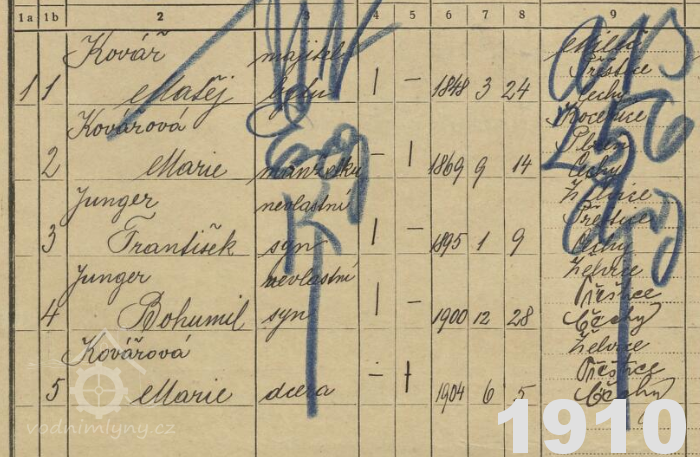 1a 1b 2 3 4 5 6 7 8 9
Kovář majitel
1 1 Matěj bytu 1 – 1848 3 24 Přeštice
Čechy
Kovářová
Plzeň
2 Marie manželka – 1 1869 9 14 Čechy
Junger nevlastní Zelvice
Přeštice
3 František syn 1 – 1895 1 9 Čechy
Junger nevlastní Zelvice
Přeštice
4 Bohumil syn 1 – 1900 12 28 Čechy
Kovářová Zelvice
Přeštice
5 Marie dcera – 1 1904 6 5 Čechy
vodnimlyny.cz
1910